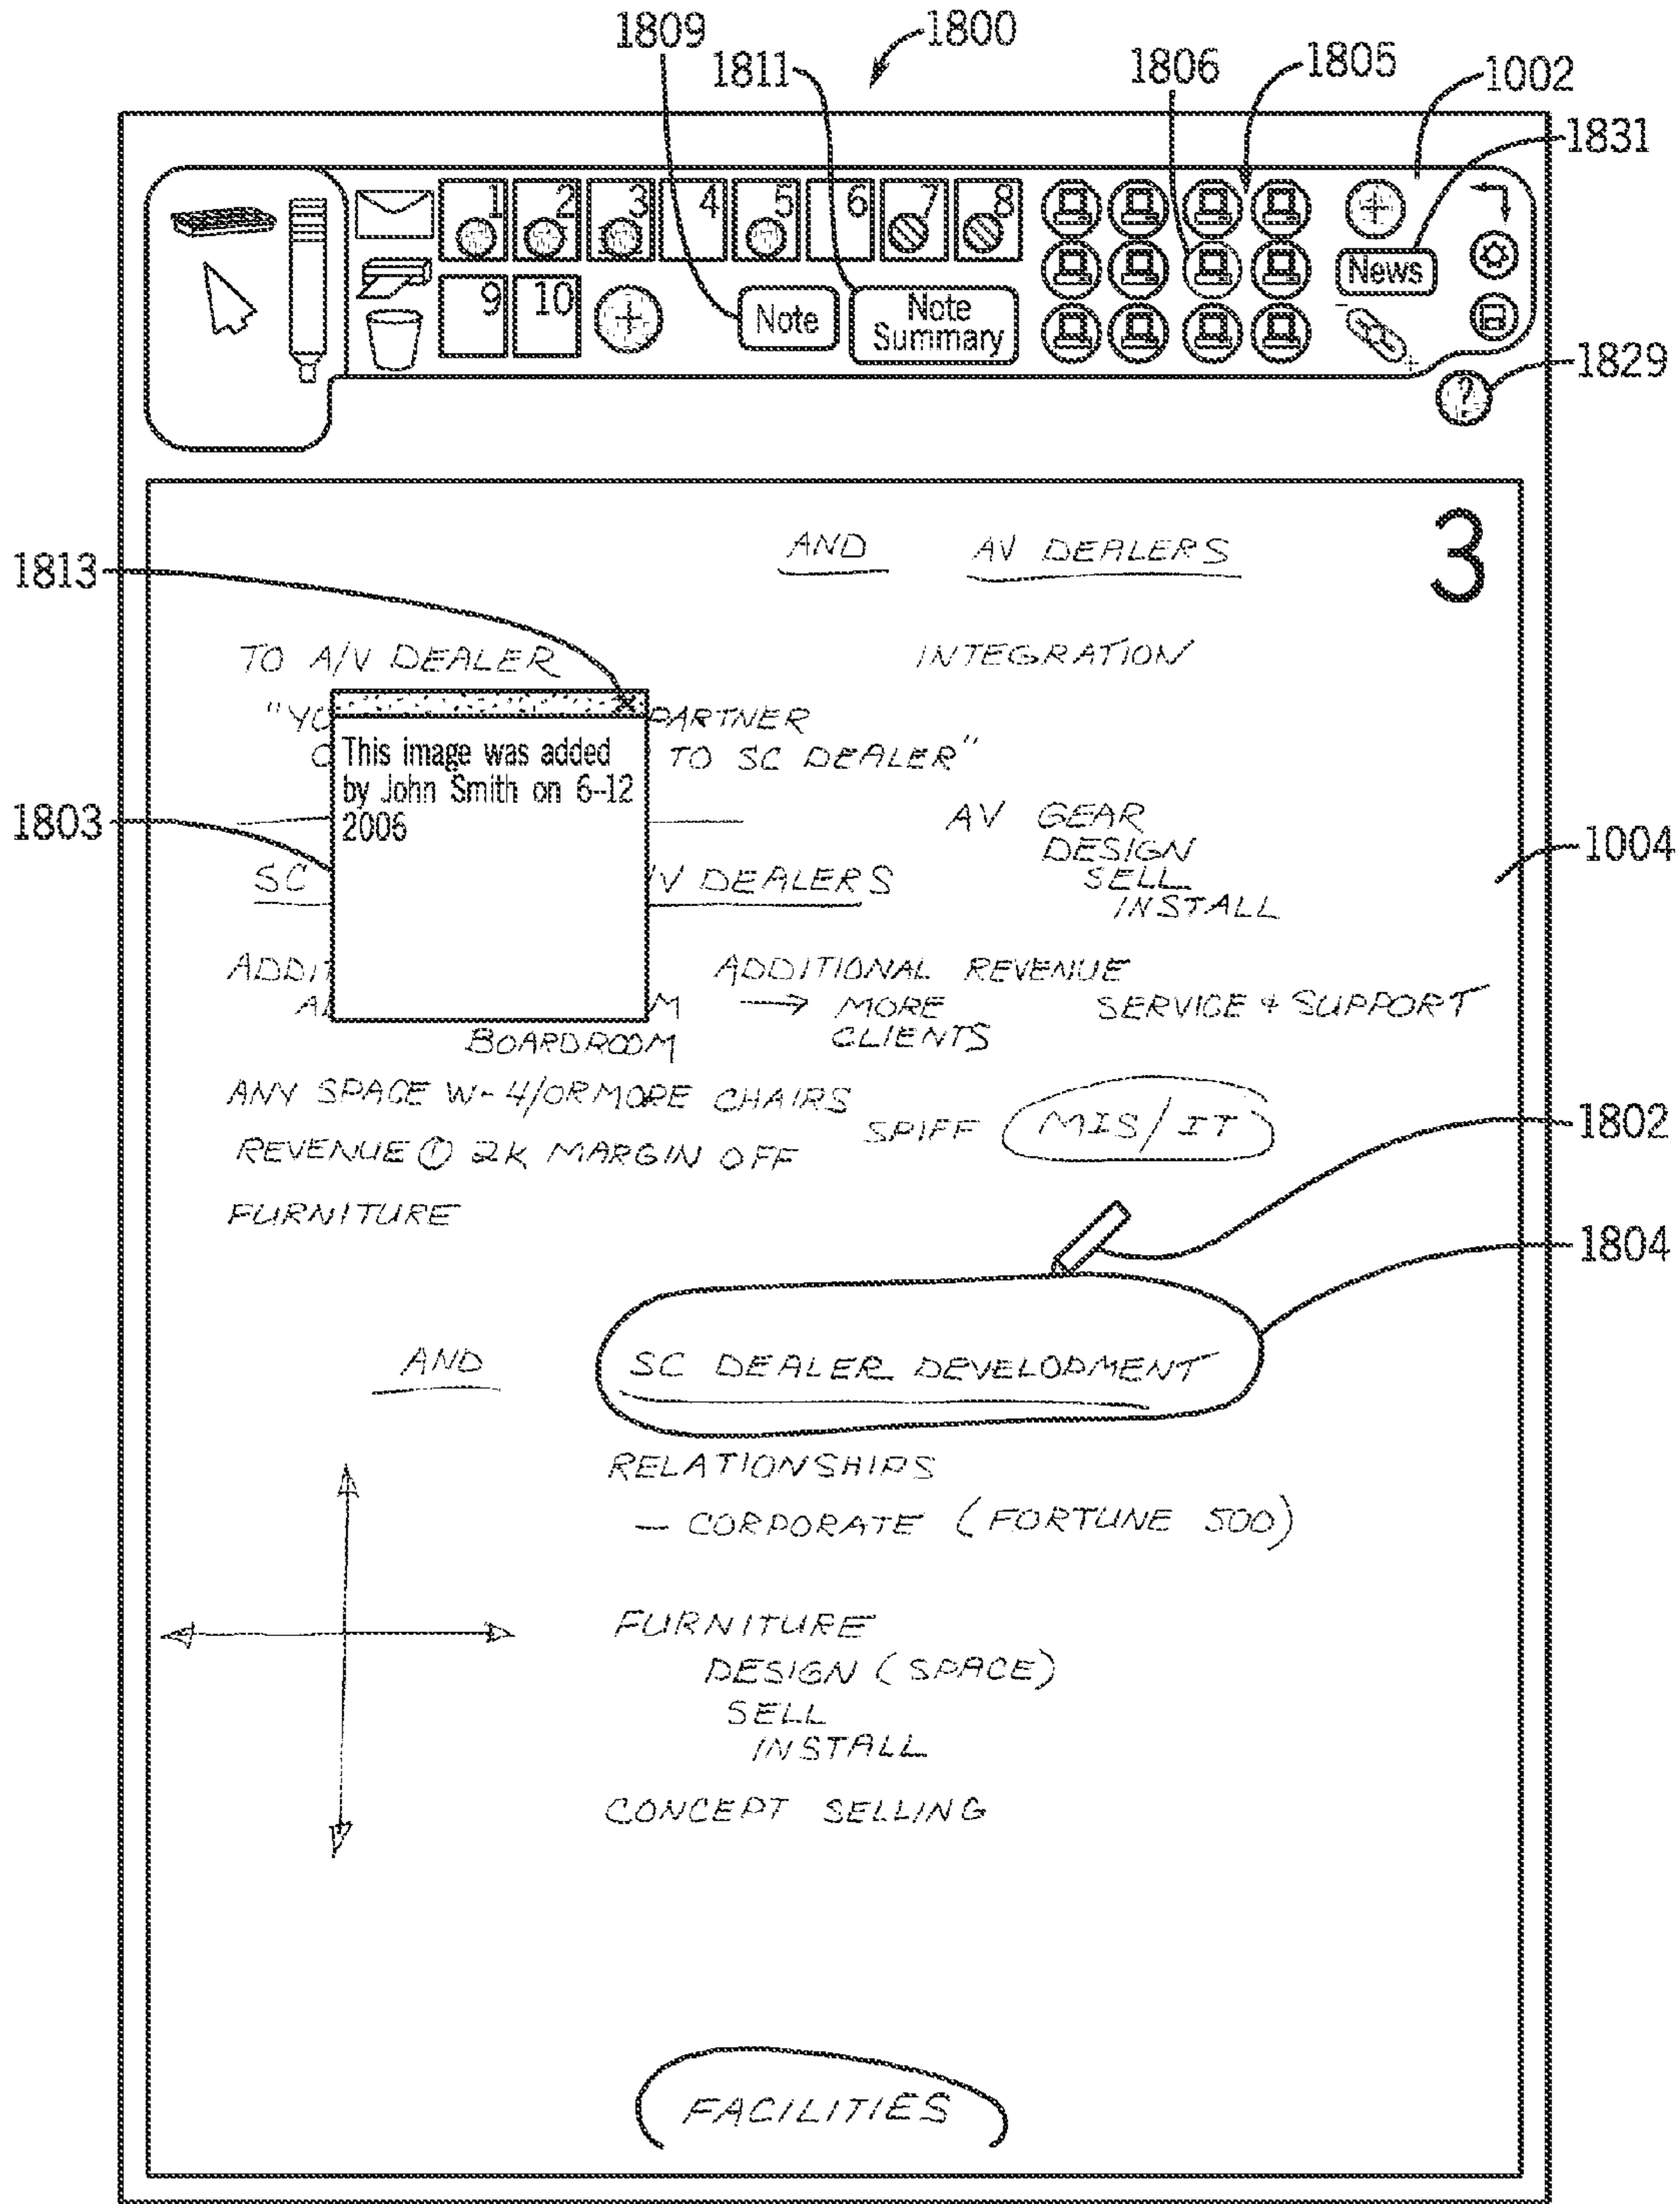 1809
1800
1811
1806
1805
1002
1831
1 2 3 4 5 6 7 8
9 10
Note
Note
Summary
News
?
1829
3
AND AV DEALERS
1813
TO A/V DEALER
INTEGRATION
"YO PARTNER
TO SC DEALER"
This image was added
by John Smith on 6-12
2006
1803
AV GEAR
DESIGN
SELL
INSTALL
1004
SC V DEALERS
ADDIT ADDITIONAL REVENUE
M → MORE
CLIENTS
SERVICE + SUPPORT
BOARDROOM
ANY SPACE W- 4/OR MORE CHAIRS
SPIFF MIS/IT
1802
REVENUE ① 2K MARGIN OFF
FURNITURE
1804
AND SC DEALER DEVELOPMENT
RELATIONSHIPS
— CORPORATE (FORTUNE 500)
FURNITURE
DESIGN (SPACE)
SELL
INSTALL
CONCEPT SELLING
FACILITIES